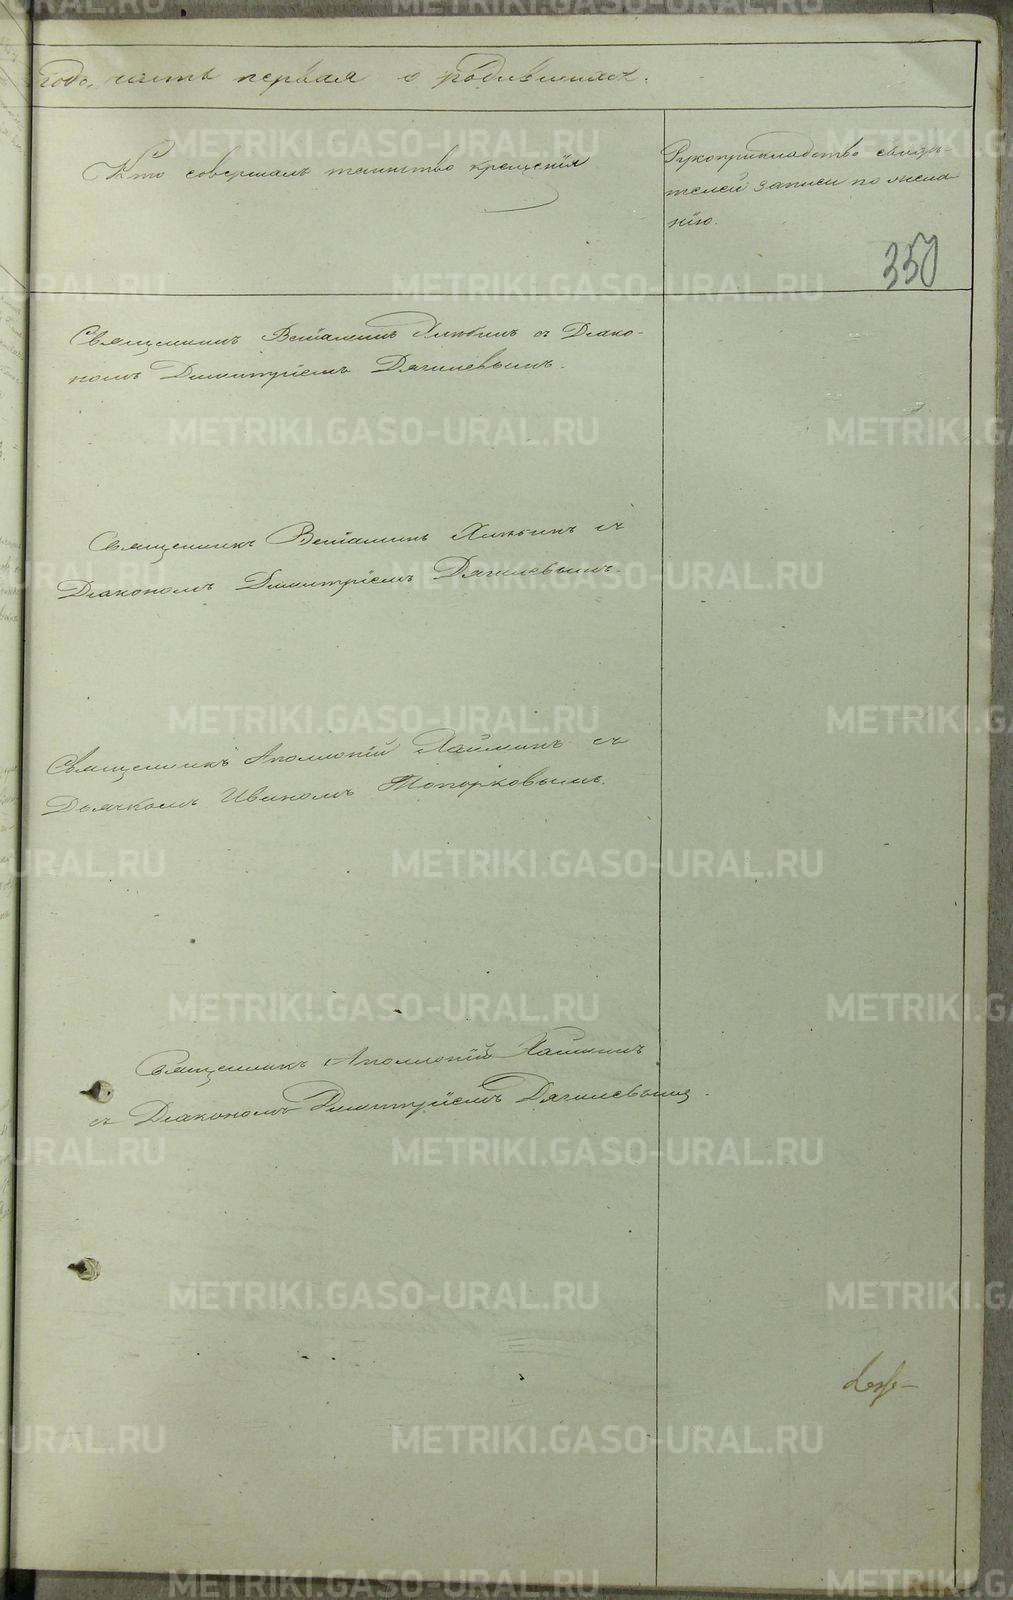 годъ, часть первая о родившихся.
Кто совершалъ таинство крещенія
Рукоприкладство свидѣ-
телей записи по жела
нію.
350
Священникъ Веніаминъ с Діако-
номъ Димитріемъ Дягилевымъ.
Священникъ Веніаминъ съ
Діакономъ Димитріемъ Дягилевымъ.
Священникъ Аполлоній съ
Дьячкомъ Иваномъ Топорковымъ.
Священникъ Аполлоній
съ Діакономъ Димитріемъ Дягилевымъ.
METRIKI.GASO-URAL.RU